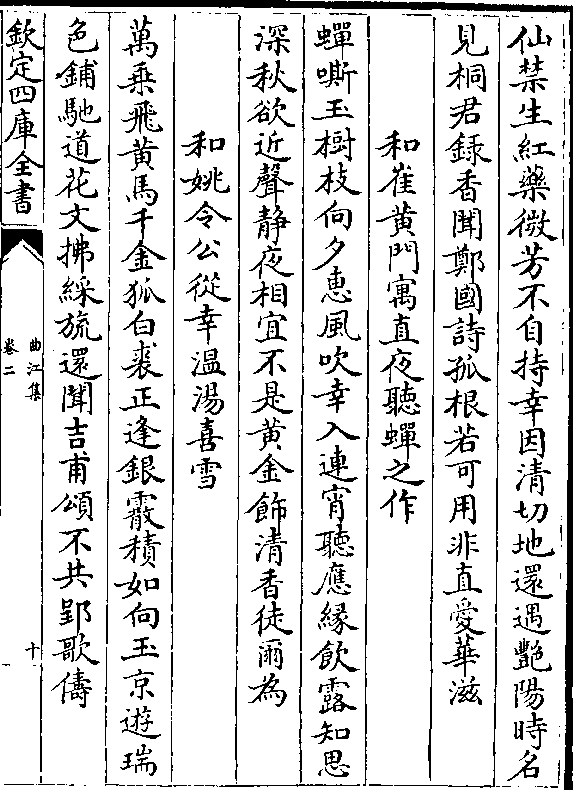 仙禁生紅藥微芳不自持幸因清切地還遇艷陽時名
見桐君録香聞鄭國詩孤根若可用非直愛華滋
和崔黄門寓直夜聽蟬之作
蟬嘶玉樹枝向夕惠風吹幸入連宵聽應緣飲露知思
深秋欲近聲静夜相宜不是黄金飾清香徒爾為
和姚令公從幸温湯喜雪
萬乗飛黄馬千金狐白裘正逢銀霰積如向玉京遊瑞
色鋪馳道花文拂綵旒還聞吉甫頌不共郢歌儔
欽定四庫全書
曲江集
卷二
十